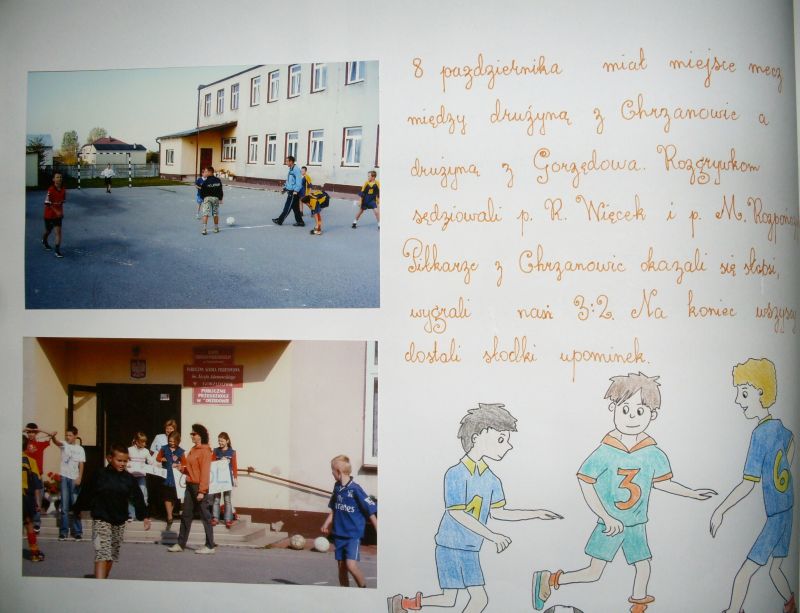 8 pazdziernika miał miejsce mecz
między drużyną z Chrzanowic a
drużyną z Gorzędowa. Rozgrywkom
sędziowali p. R. Więcek i p. M.
Piłkarze z Chrzanowic okazali się słabsi,
wygrali nasi 3:2. Na koniec wszyscy
dostali słodki upominek.
PUBLICZNA SZKOŁA PODSTAWOWA
W GORZĘDOWIE
PUBLICZNE
PRZEDSZKOLE
W GORZĘDOWIE
1
3
6